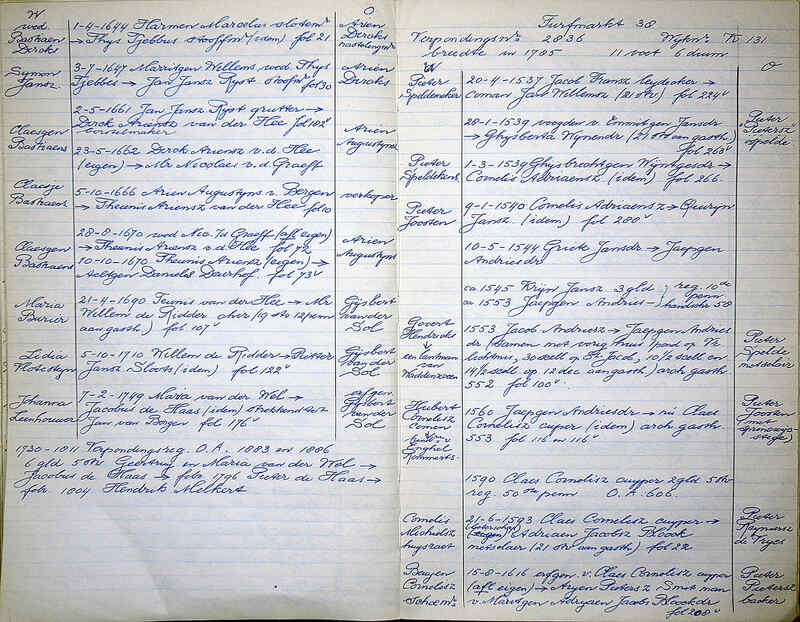 W
O
wed Bastiaen Dircks
1-4-1644 Harmen Marcelus slotem^r
→ Thys Tjebbes stooffm^r (idem) fol 21
Arien Dircks nastelingm^r
Symon Jansz.
3-7-1647 Maritgen Willems wed Thys
Tjebbes → Jan Jansz Ryst stoofm^r fol 30
Arien Dircks
2-5-1661 Jan Jansz Ryst grutter →
Dirck Ariensz van der Hee fol 182^v
Claesgen Bastiaens
Arien Augustyns
23-5-1662 Dirck Ariensz v.d. Hee
(eigen) → Mr Nicolaes v.d Graeff
Claesje Bastiaens
5-10-1666 Arien Augustyns v. Bergen
→ Theunis Ariensz van der Hee fol 10
verkoper
28-8-1670 wed Nic. Js Graeff (afl eigen)
→ Theunis Ariensz v.d. Hee fol 72
Claesgen Bastiaens
10-10-1670 Theunis Ariensz (eigen) →
Aeltgen Daniels Doerhof. fol 73^v
Arien Augustyns
Maria Buriér
21-4-1690 Teunis van der Hee → Mr
Willem de Ridder chir (19 sts 12 penn
aan gasth) fol 107^v
Gijsbert van der Dol
Lidia
5-10-1710 Willem de Ridder → Pieter
Jansz Sloots (idem) fol 122^v
Gijsbert van der Dol
Johanna Leenhouwer
7-2-1749 Maria van der Wel →
Jacobus de Haas (idem) strekkend tot
Jan van Bergen fol 176^v
erfgen Gijsbert van der Dol
1730-1811 Verpondingsreg. O.A. 1883 en 1886
6 gld 5 str Geertruy en Maria van der Wel →
Jacobus de Haas → febr 1796 Pieter de Haas →
febr 1804 Hendrik Melkert
Turfmarkt 38
Verpondingsnr. 2836 Wyknr. K 131
breedte in 1785 11 voet 6 duim.
W
O
Pieter Speldemaker
20-4-1537 Jacob Fransz leydecker →
Coman Jan Willemsz (21 str) fol 224^v
28-1-1539 voogden v. Emmitgen Jansdr
→ Ghysberta Wynendr (21 str aan gasth)
fol 263^v
Pieter Pietersz spelde
Pieter Speldekens
1-3-1539 Ghysbrechtgen Wyntgesdr →
Cornelis Adriaensz (idem) fol 266.
Pieter Joosten
9-1-1540 Cornelis Adriaensz → Quiryn
Jansz. (idem) fol 280^v
10-5-1544 Griete Jansdr → Jaepgen
Andriesdr
ca 1545 Krijn Jansz 3 gld } reg. 10de penn
ca 1553 Jaepgen Andries - } handschr 58
Govert Hendricks een lantman van Waddinxveen
1553 Jacob Andriesz → Jaepgen Andries
dr (samen met vorig huis 1 pond op Vr
lichtmis, 30 scell op St Jacob, 10 1/2 scell en
14 1/2 scell op 12 dec aan gasth) arch gasth.
552 fol 100^v.
Pieter Spelde metselair
Huibert Cornelisz comen
Enghel Rommerts
1560 Jaepgen Andriesdr → nu Claes
Cornelisz cuper (idem) arch gasth.
553 fol 116 en 116^v
Pieter Joosten
1590 Claes Cornelisz cuyper 2 gld 5 str
reg. 50ste penn O.A. 606.
Cornelis Michielsz huysraet
21-6-1593 Claes Cornelisz cuyper →
(eigen) Adriaen Jacobsz Kloock
metselaer (21 str aan gasth) fol 22
Pieter Reymersz de Fryes
Beuyen Cornelisz schoenm^r
15-8-1616 erfgen. v. Claes Cornelisz cuyper
(afl eigen) → Aryen Pietersz Smit man
v. Maritgen Adryaen Jacobs Kloockdr
fol 208^v
Pieter Pietersz backer